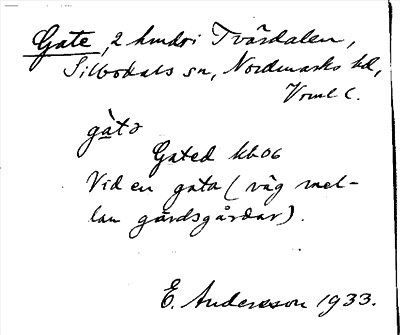 Gate, 2 hmdr i Tvärdalen,
Silbodals sn, Nordmarks hd,
Vrml l.
gàtə
Gated kb 06
Vid en gata (väg mel-
lan gärdsgårdar).
E. Andersson 1933.